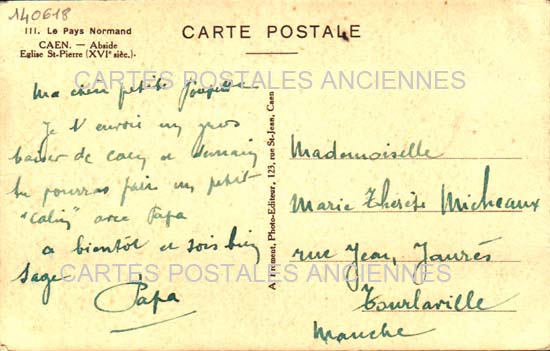 140618
III. Le Pays Normand
CAEN. — Abside
Eglise St-Pierre (XVIe sièc.).
CARTE POSTALE
CARTES POSTALES ANCIENNES
Ma chère petite
Je t'envoie un gros
baiser de Caen et demain
tu pourras faire un petit
"Calin" avec Papa
a bientôt et sois bien
sage
Papa
A Frément, Photo-Editeur, 123, rue St-Jean, Caen
Mademoiselle
Marie Thérèse Micheaux
rue Jean, Jaurès
Tourlaville
Manche
CARTES POSTALES ANCIENNES